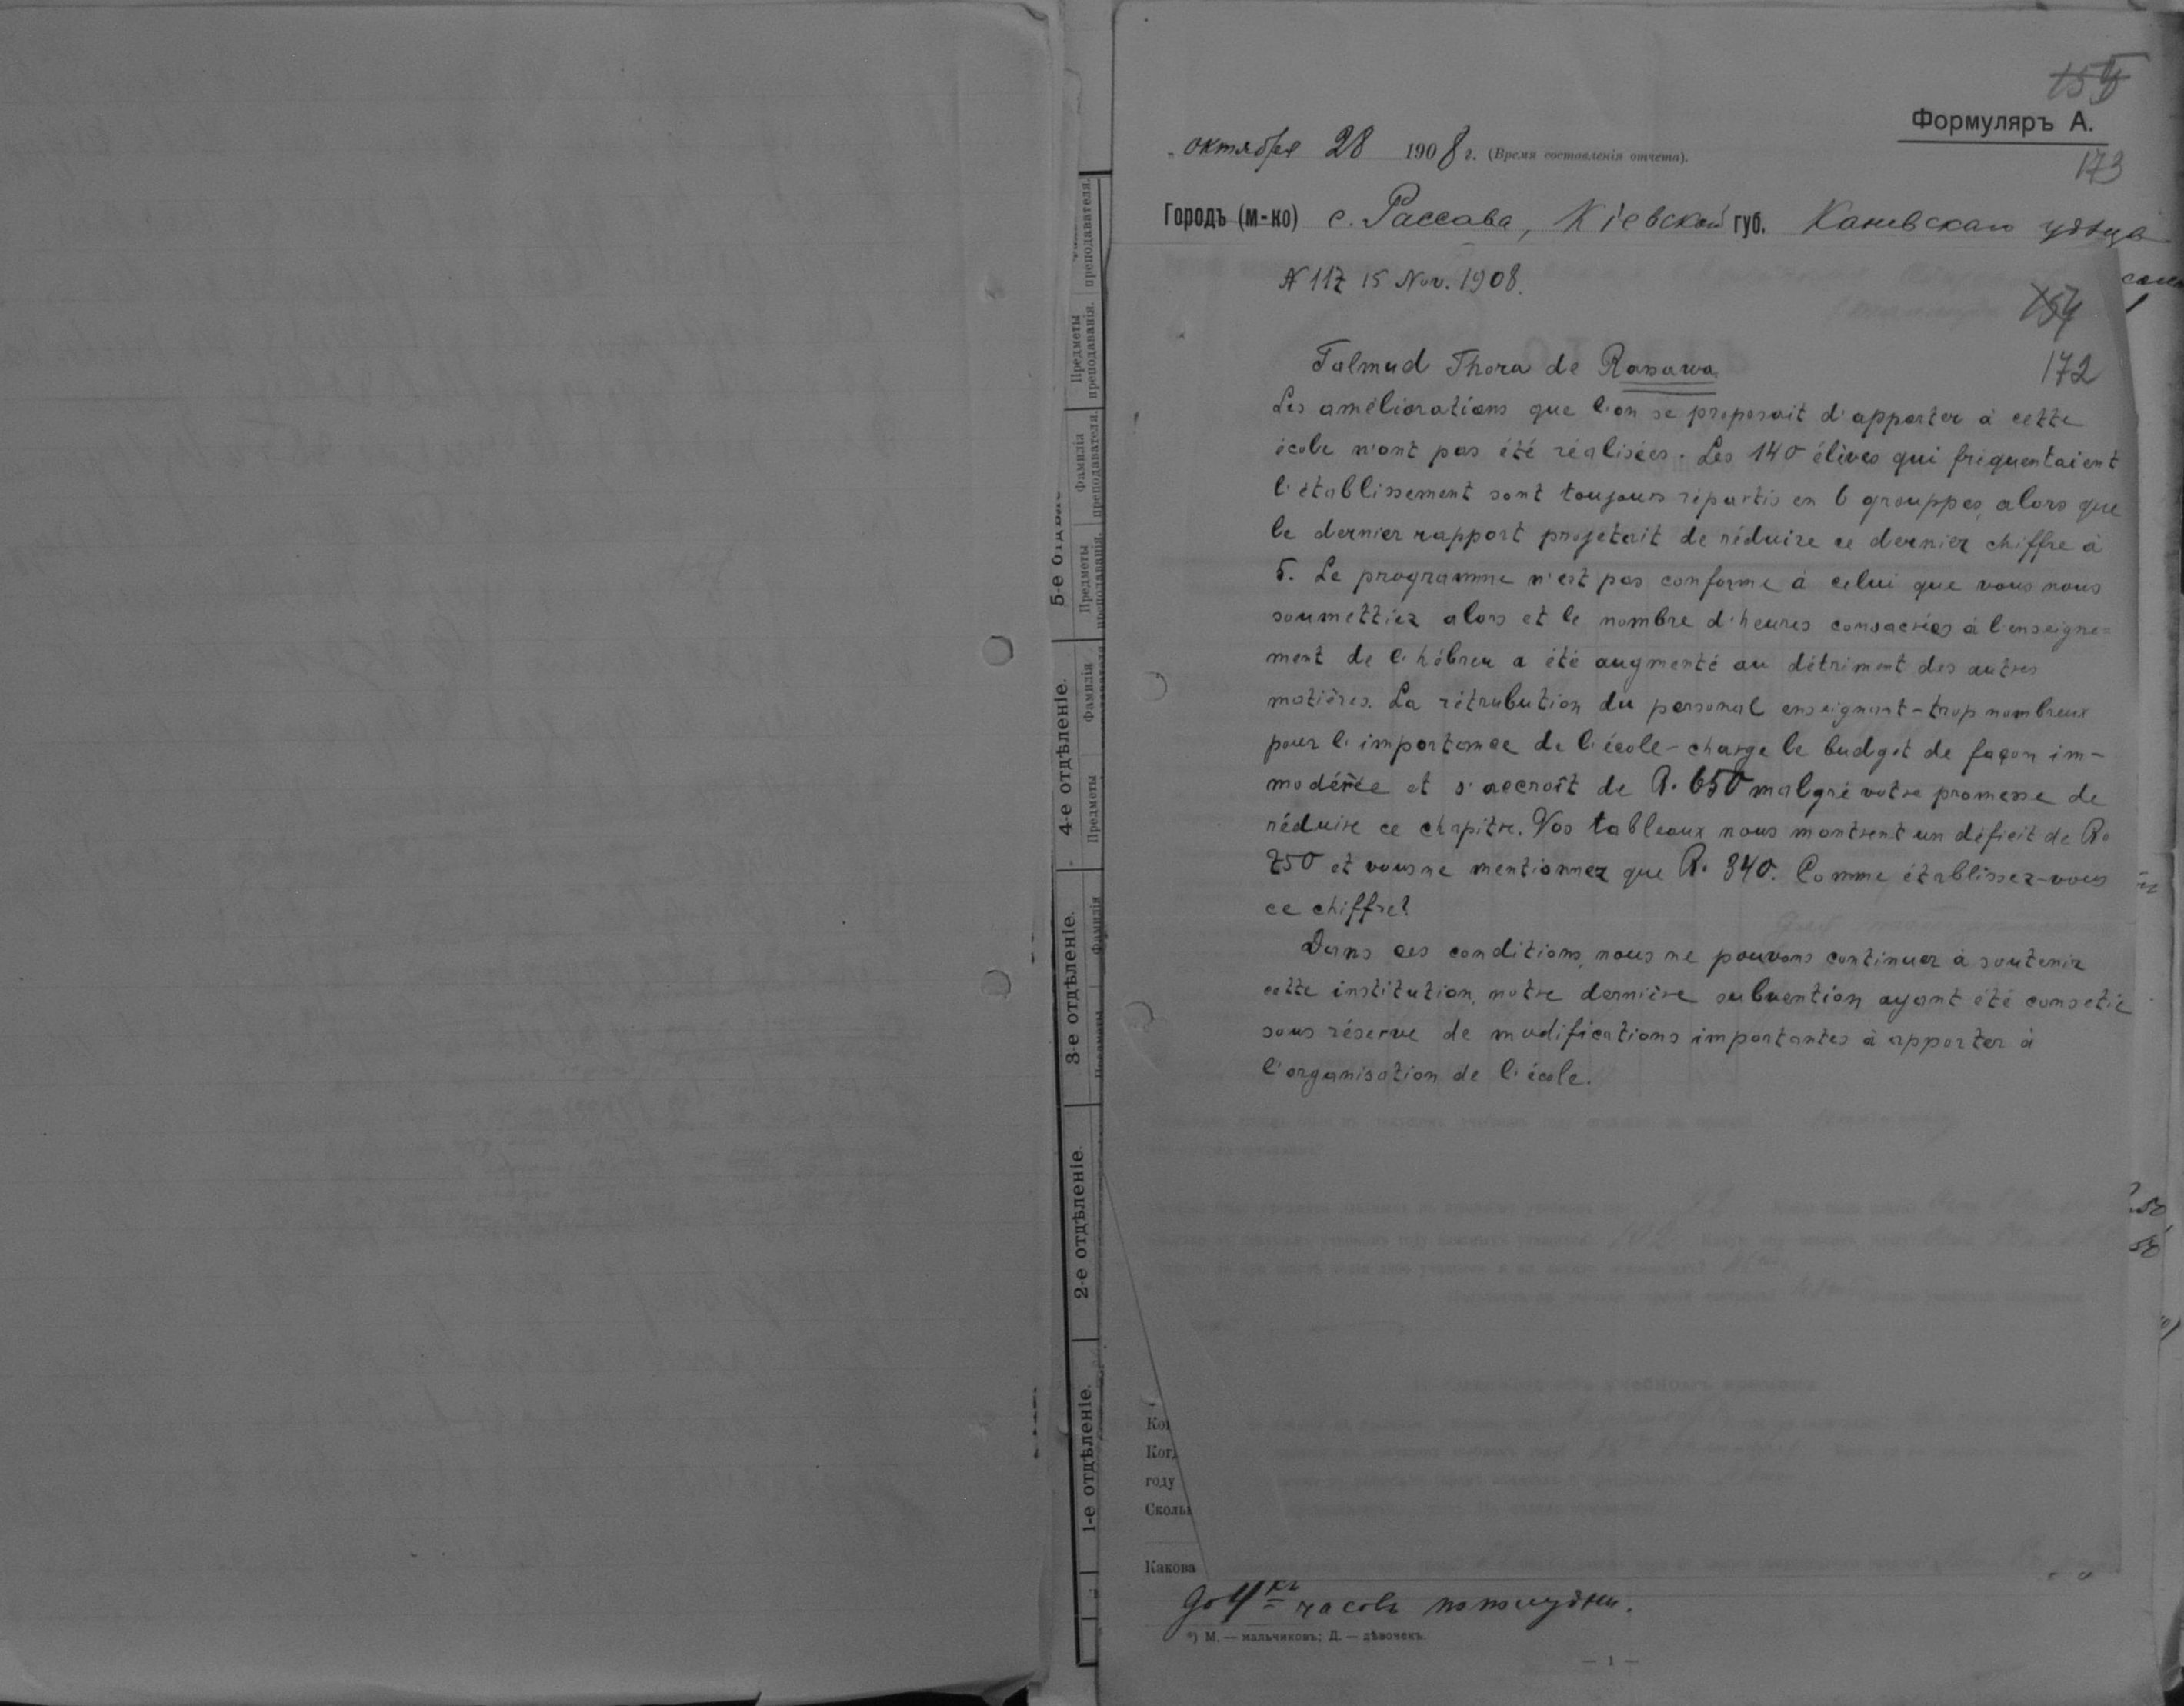 5-е отдѣле
4-е отдѣленіе.
3-е отдѣленіе.
2-е отдѣленіе.
1-е отдѣленіе.
преподавателя.
Предметы преподаванія.
Фамилія преподавателя.
Предметы преподаванія.
Фамилія
Предметы
Фамилія
154
Формуляръ А.
„ октября 28 1908 г. (Время составленія отчета).
173
Городъ (м-ко) с. Рассава, Кіевской губ. Каневскаго уѣзда
N 117 15 Nov. 1908.
154
Talmud Thora de Rassawa
172
Les améliorations que l'on se proposait d'apporter à cette
école n'ont pas été réalisées. Les 140 élèves qui fréquentaient
l'établissement sont toujours répartis en 6 grouppes, alors que
le dernier rapport projetait de réduire ce dernier chiffre à
5. Le programme n'est pas conforme à celui que vous nous
soumettiez alors et le nombre d'heures consacrées à l'enseigne=
ment de l'hébreu a été augmenté au détriment des autres
matières. La rétrubution du personal enseignant-trop nombreux
pour l'importance de l'école-charge le budget de façon im-
modérée et s'accroît de R. 650 malgré votre promesse de
réduire ce chapitre. Vos tableaux nous montrent un déficit de R.
750 et vous ne mentionnez que R. 340. Comme établissez-vous
ce chiffre?
Dans ces conditions, nous ne pouvons continuer à soutenir
cette institution, notre dernière subvention ayant été consetie
sous réserve de modifications importantes à apporter à
l'organisation de l'école.
Ког
году
Сколь
Какова
до 4хъ часовъ пополудни.
*) М. — мальчиковъ; Д. — дѣвочекъ.
— 1 —